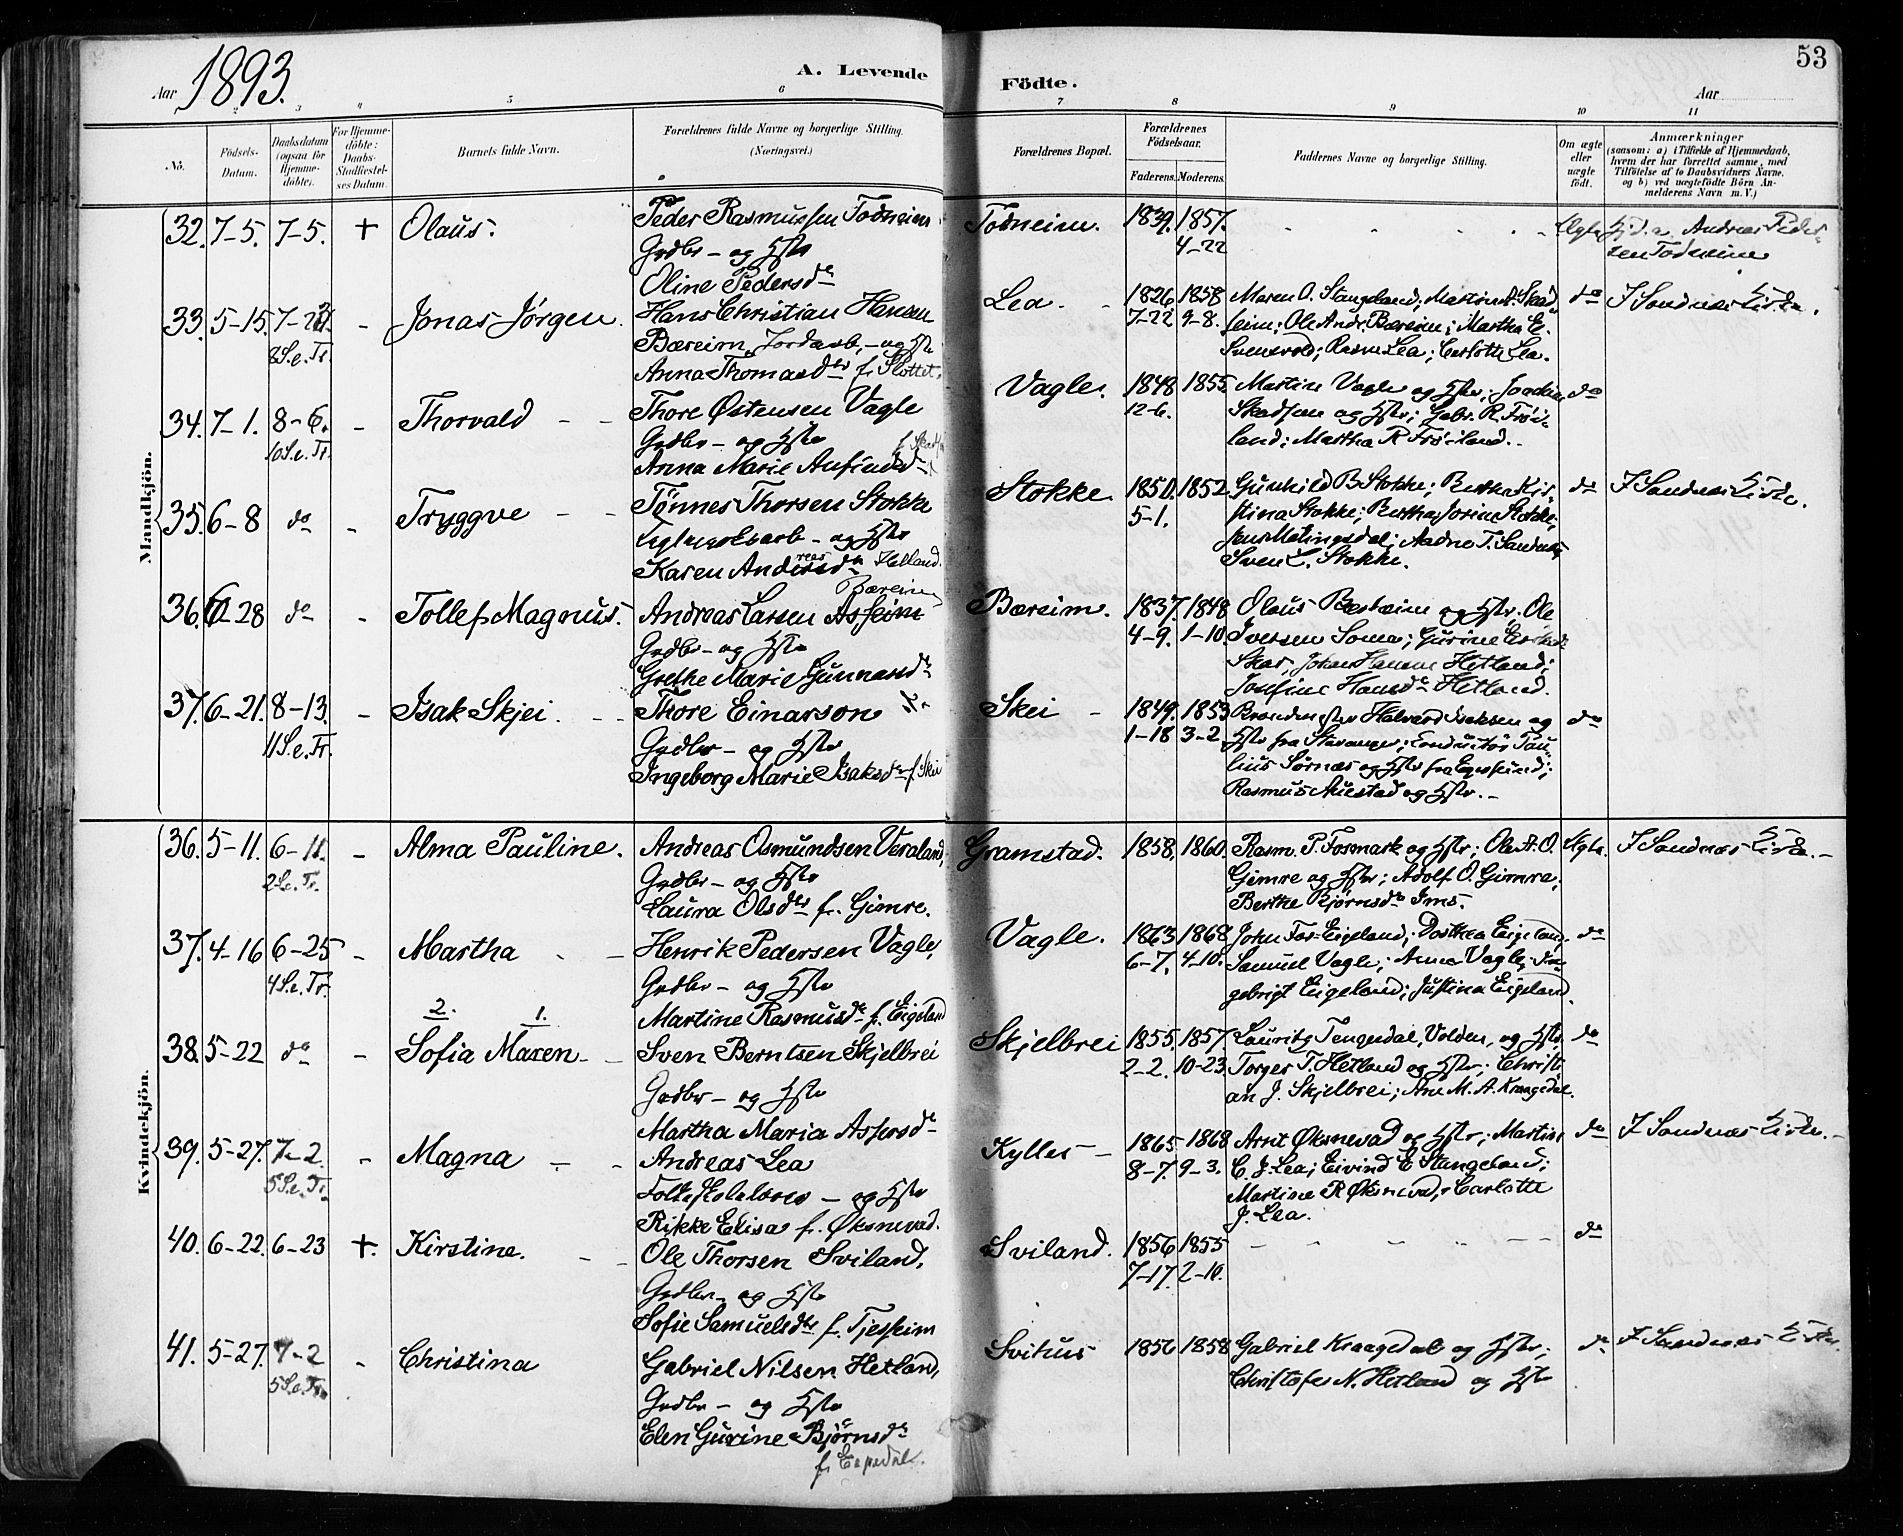 53
Aar 1893.
A. Levende Födte.
Aar
2 3 4 5 6 7 8 9 10 11
No.
Födsels-Datum.
Daabsdatum (ogsaa for Hjemme-döbte).
For Hjemme-döbte: Daabs-Stadfæstel-ses Datum.
Barnets fulde Navn.
Forældrenes fulde Navne og borgerlige Stilling. (Næringsvei.)
Forældrenes Bopæl.
Forældrenes Födselsaar.
Faderens. Moderens.
Faddernes Navne og borgerlige Stilling.
Om ægte eller uægte födt.
Anmærkninger
(saasom: a) i Tilfælde af Hjemmedaab, hvem der har forrettet samme, med Tilföielse af to Daabsvidners Navne. og b) ved uægtefödte Börn An-melderens Navn m. V.)
Mandkjön.
32. 7-5. 7-5. + Olaus.
Peder Rasmussen Todneim
Grdbr - og Hstr
Oline Pedersdr
Todneim. 1839. 1857. 4-22
Ægte
Andreas Peder-
sen Todneim
33. 5-15. 7-23. 8 S. e. Tr. - Jonas Jørgen.
Hans Christian Hansen
Bæreim, Jordarb. - og Hstr
Anna Thomasdtr f. Slottet.
Lea. 1826 7-22 1858 9-8.
Maren O. Stangeland; Martin Skad-
seim; Ole Andr. Bæreim; Martha E.
Svensvold; Rasm. Lea; Carlotte Lea.
do I Sandnæs Kirke.
34. 7-1. 8-6. 10 S. e. Tr. - Thorvald
Thore Østensen Vagle
Grdbr - og Hstr
Anna Marie Anfindsd
Vagle. 1848 12-6. 1855.
Martin Vagle og Hstr; Joachim
Skadsem og Hstr; Gabr. R. Frøi-
land; Martha R Frøiland.
do
35. 6-8 do - Tryggve
Tønnes Thorsen Stokke
Teglverksarb - og Hstr
Karen Andreasdr Helland.
Stokke. 1850. 5-1. 1852.
Gunhild B Stokke; Berthe Kir-
stina Stokke; Bertha Josine Stokke;
Aadne T. Sandnes;
Sven L. Stokke.
do I Sandnæs Kirke.
36. 6-28 do - Tollef Magnus.
Bæreim
Andreas Larsen Asheim
Grdbr - og Hstr
Grethe Marie Gunnarsdr
Bæreim. 1837. 4-9. 1848 1-10.
Olaus Bærheim og Hstr. Ole
Iversen Soma; Gurine
Skar, Johan Hansen Hetland;
Josefine Hansdr Hetland.
37. 6-21. 8-13. 11 S. e. Tr. - Isak Skjei.
Thore Einarson
Grdbr - og Hstr
Ingeborg Marie Isaksdr f. Skei
Skei - 1849. 1-18 1853 3-2.
Halvard Isaksen og
Hstr fra Stavanger; Konduktør Pau-
lius Sørnæs og Hstr fra Egersund;
Rasmus Auestad og Hstr. -
do
Kvindekjön.
36. 5-11. 6-11. 2 S. e. Tr. - Alma Pauline.
Andreas Osmundsen Veraland,
Grdbr - og Hstr
Laura Olsdtr f. Gimre.
Gramstad. 1858. 1860.
Rasm. P. Fosmark og Hstr; Ole A. O.
Gimre og Hstr; Adolf O. Gimre;
Berthe Bjørnsdr Ims.
Ægte. I Sandnæs Kirke. -
37. 4-16 6-25 4 S. e. Tr. - Martha
Henrik Pedersen Vagle,
Grdbr - og Hstr
Martine Rasmusdr f. Eigeland
Vagle. 1863 6-7. 1868 4-10.
John Fos-Eigeland; Dorthea Eigeland,
Samuel Vagle; Anna Vagle, In-
gebrigt Eigeland; Justina Eigeland.
do
2. 1.
38. 5-22 do - Sofia Maren
Sven Berntsen Skjelbrei
Grdbr - og Hstr
Martha Maria Aspersdr
Skjelbrei 1855. 2-2. 1857. 10-23.
Lauritz Tengesdal, Volden, og Hstr,
Torger T. Hetland og Hstr; Christi-
an J. Skjelbrei; Ane M. A. Kraagedal.
do
39. 5-27. 7-2. 5 S. e. Tr. - Magna
Andreas Lea
Folkeskolelærer - og Hstr
Rikke Elisa f. Øksnevad.
Kylles - 1865 8-7. 1868 9-3.
Arnt Øksnevad og Hstr; Martin
C. J. Lea; Eivind E Stangeland;
Martine R Øksnevad, Carlotte
J. Lea.
do I Sandnæs Kirke. -
40. 6-22. 6-23 +. Kirstine.
Ole Thorsen Sviland,
Grdbr - og Hstr
Sofie Samuelsdtr f. Tjessheim
Sviland. 1856 7-17. 1855 2-10.
do
41. 5-27. 7-2 5 S. e. Tr. - Christina
Gabriel Nilsen Hetland,
Grdbr - og Hstr
Elen Gurine Bjørnsdr
f. Espedal.
Svihus 1856 1858
Gabriel Kraagedal og Hstr;
Christofer N. Hetland og Hstr
do I Sandnæs Kirke.